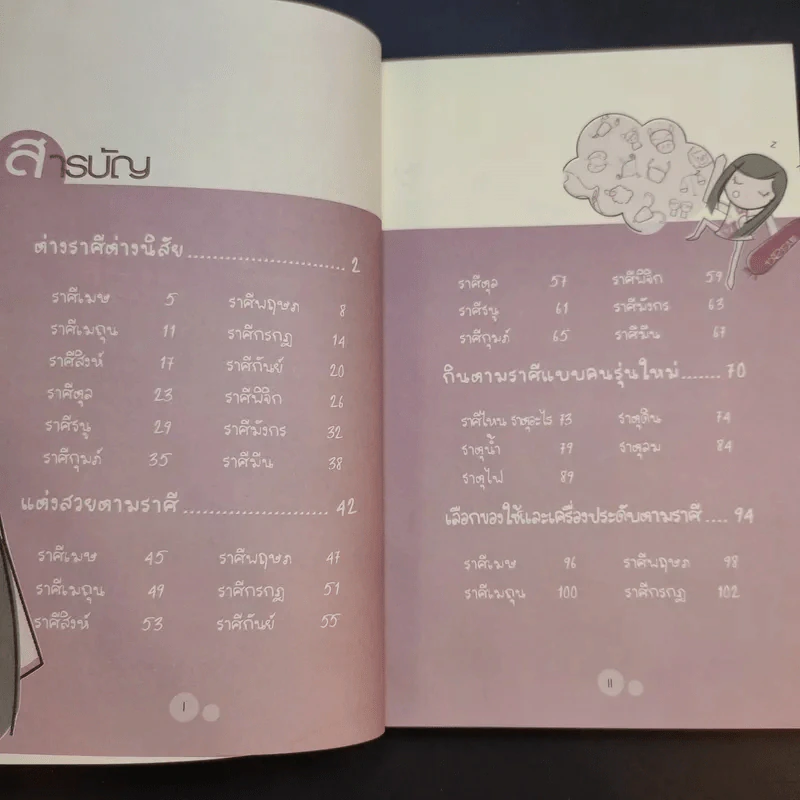 สารบัญ
ต่างราศีต่างนิสัย........................ 2
ราศีเมษ 5 ราศีพฤษภ 8
ราศีเมถุน 11 ราศีกรกฎ 14
ราศีสิงห์ 17 ราศีกันย์ 20
ราศีตุล 23 ราศีพิจิก 26
ราศีธนู 29 ราศีมังกร 32
ราศีกุมภ์ 35 ราศีมีน 38
แต่งสวยตามราศี........................ 42
ราศีเมษ 45 ราศีพฤษภ 47
ราศีเมถุน 49 ราศีกรกฎ 51
ราศีสิงห์ 53 ราศีกันย์ 55
I
z
ราศีตุล 57 ราศีพิจิก 59
ราศีธนู 61 ราศีมังกร 63
ราศีกุมภ์ 65 ราศีมีน 67
กินตามราศีแบบคนรุ่นใหม่....... 70
ราศีไหน ธาตุอะไร 73 ธาตุดิน 74
ธาตุน้ำ 79 ธาตุลม 84
ธาตุไฟ 89
เลือกของใช้และเครื่องประดับตามราศี.... 94
ราศีเมษ 96 ราศีพฤษภ 98
ราศีเมถุน 100 ราศีกรกฎ 102
II